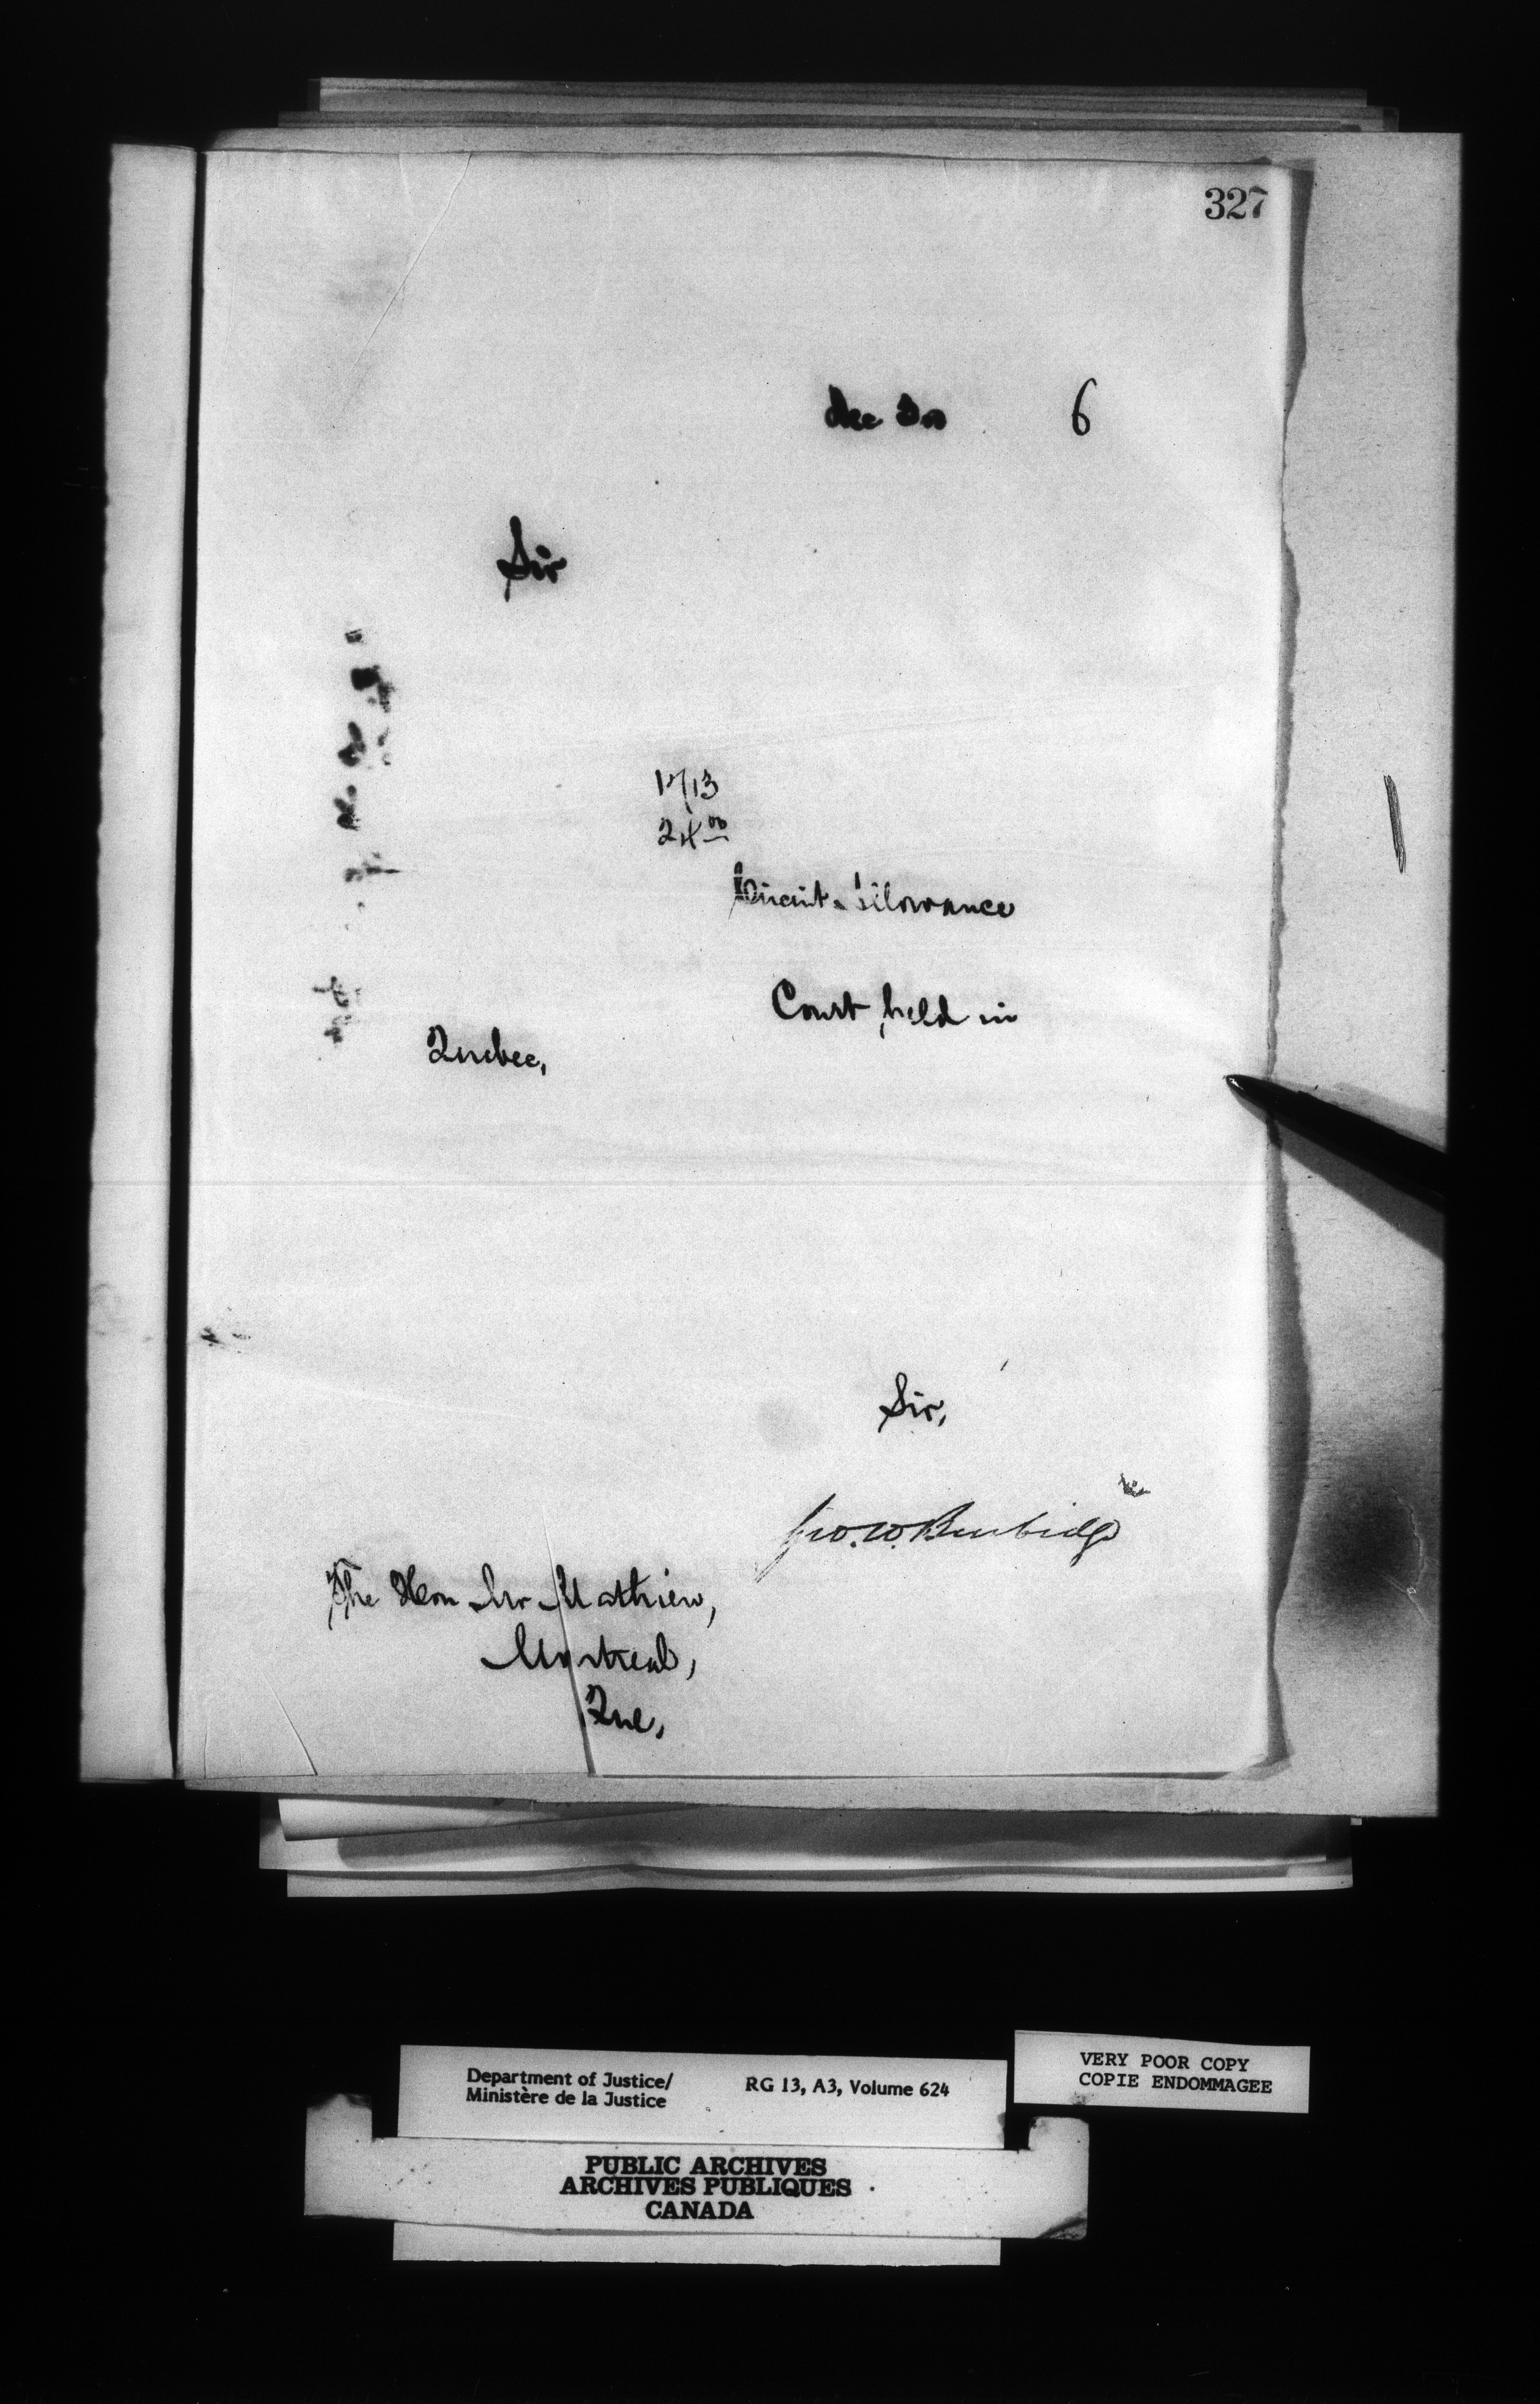 327
Dec 30 6
Sir
1713
24 00
Circuit Allowance
Court, held in
Quebec,
Sir,
Geo. W. Burbidge
The Hon Mr Mathieu,
Montreal,
Que,
Department of Justice/ RG 13, A3, Volume 624
Ministère de la Justice
VERY POOR COPY
COPIE ENDOMMAGEE
PUBLIC ARCHIVES
ARCHIVES PUBLIQUES
CANADA